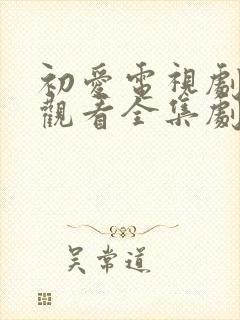 初愛電視劇
觀看全集劇
吴常道